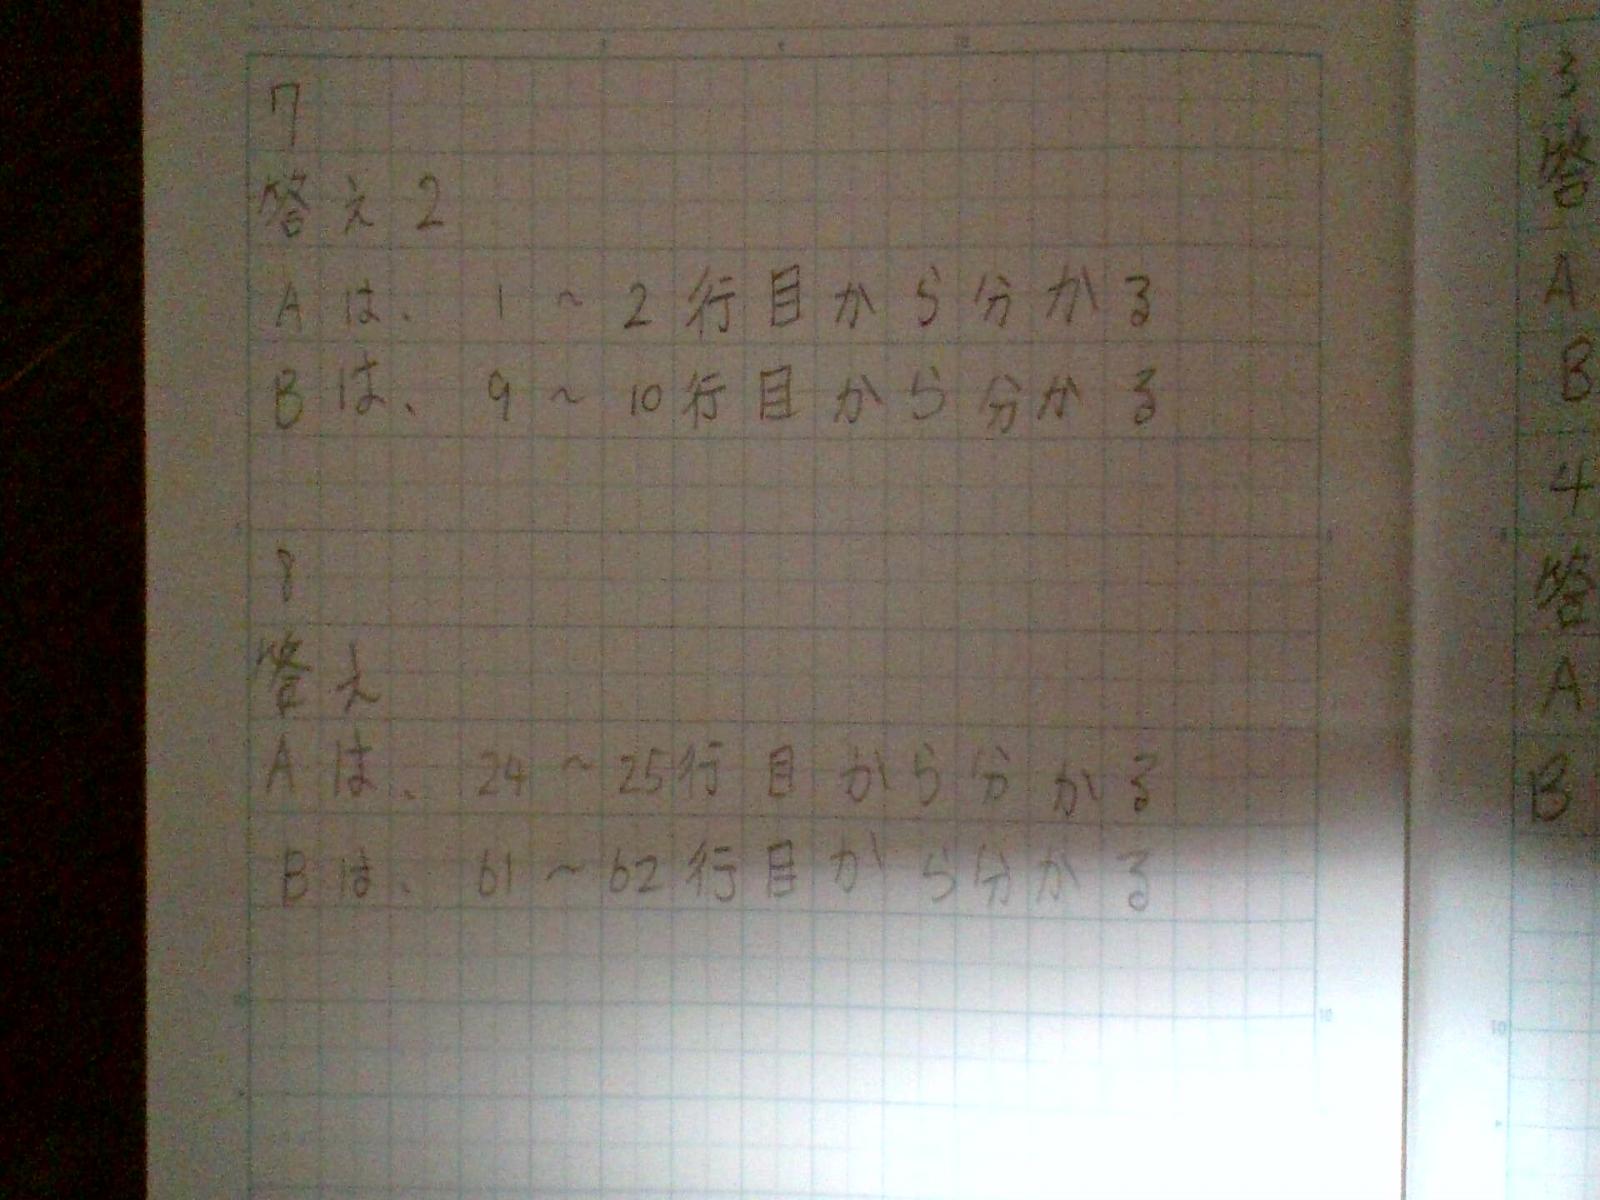 7
答え2
Aは、1～2行目から分かる
Bは、9～10行目から分かる
8
答え
Aは、24～25行目から分かる
Bは、61～62行目から分かる
3
答
A
B
4
答
A
B